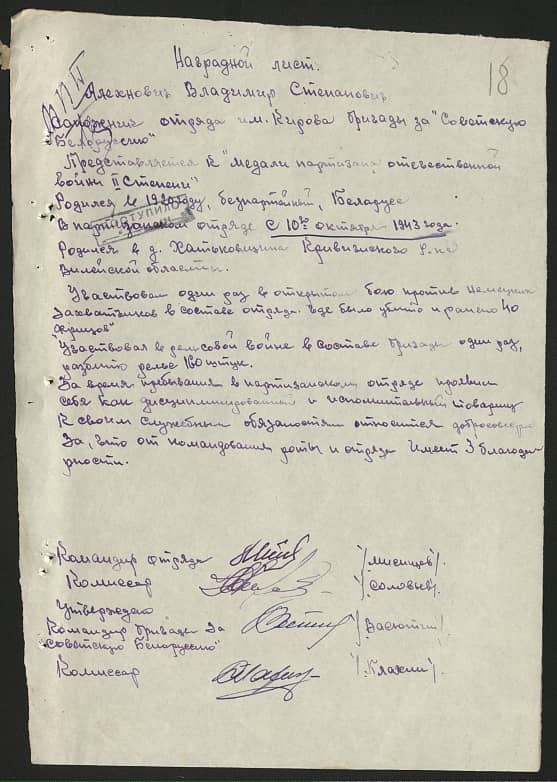 18
Наградной лист.
Алехнович Владимир Степанович
отряда им. Кирова бригады за "Советскую
Белоруссию"
Представляется к "медали партизана отечественной
войны II Степени"
Родился в году, безпартейный, Беларусс
ПОСТУПИЛО
В партизанском отряде с 10го октября 1943 года.
Родился в д. Хатьковщина Кривичского р-на
Вилейской области.
Участвовал один раз в открытом бою против немецких
захватчиков в составе отряда. где было убито и ранено 40
фрицов"
Участвовал в рельсовой войне в составе бригады один раз,
разбито рельс 160 штук.
За время пребывания в партизанском отряде проявил
себя как дисциплинированный и исполнительный товарищ
К своим служебным обязаностям относится добросовестно
За, что от командования роты и отряда Имеет 3 благода
рности.
Командир отряда /Мисницов/.
Комиссар /Соловьев/.
Утверждаю
Командир бригады За /Васютин/
"Советскую Белоруссию"
Комиссар